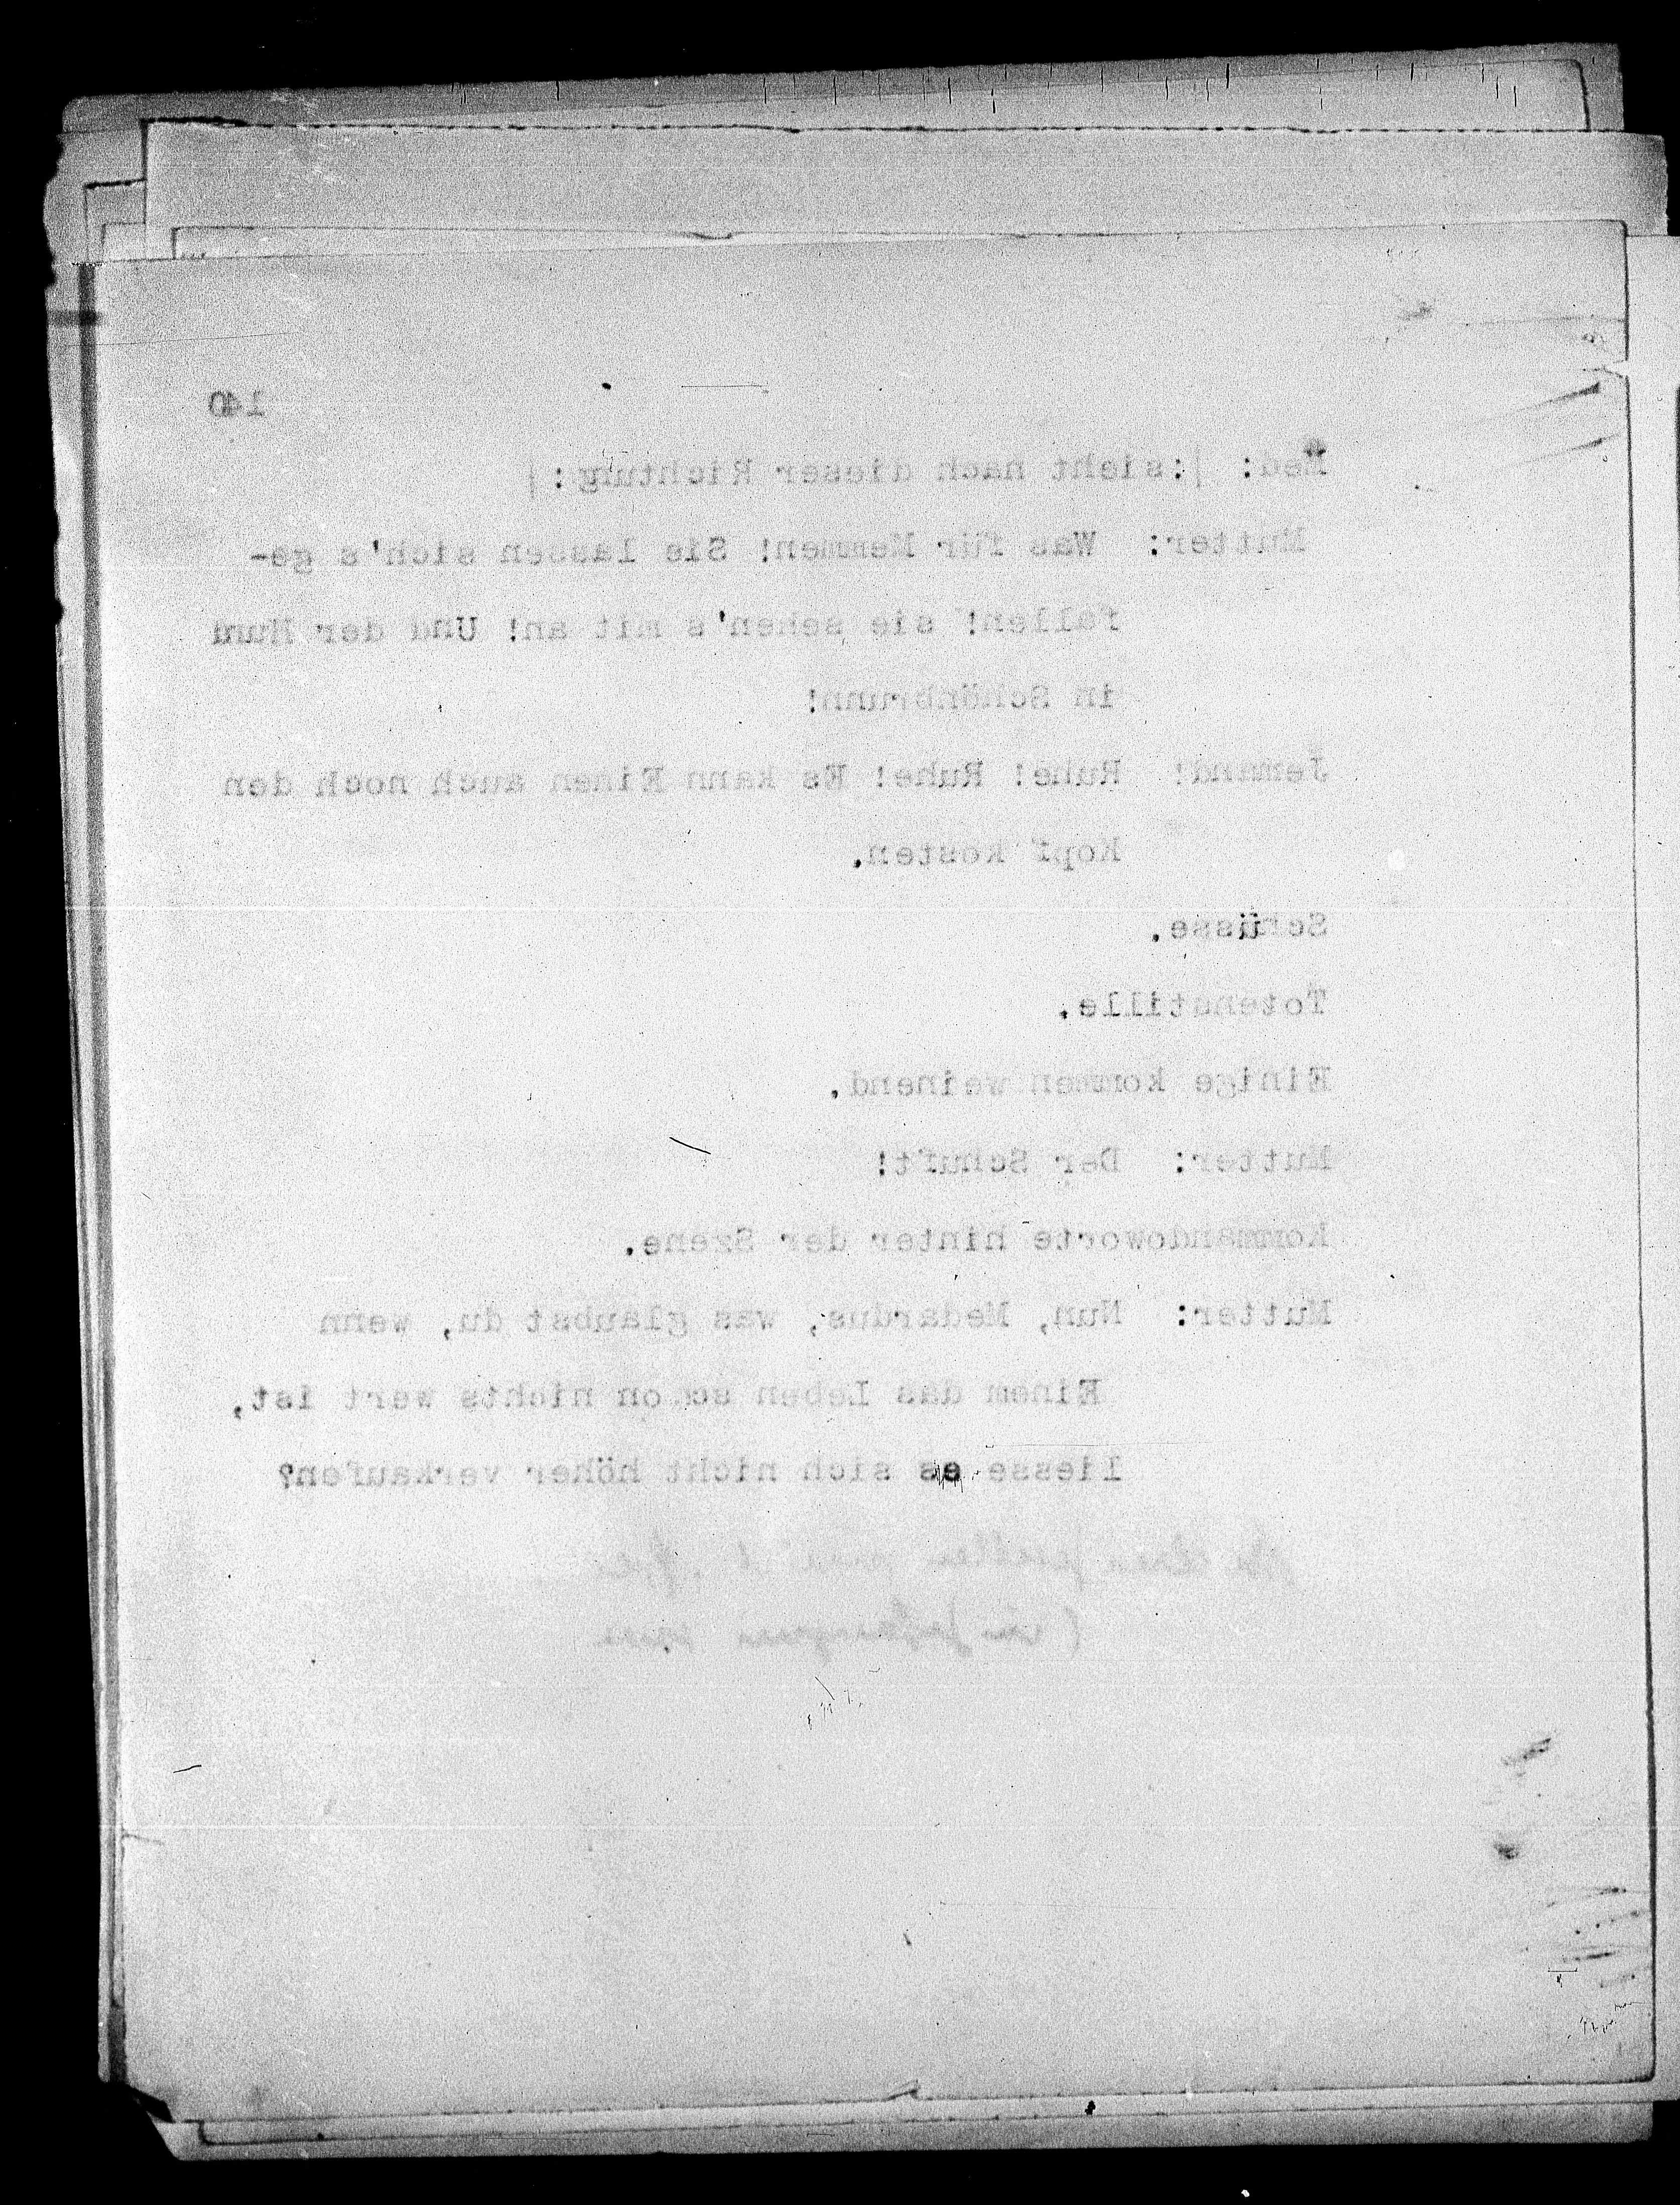 140
Med: |:sieht nach dieser Richtung:|
Mutter: Was für Memmen! Sie lassen sich's ge-
fallen! sie sehen's mit an! Und der Hund
in Schönbrunn!
Jemand: Ruhe! Ruhe! Es kann Einen auch noch den
Kopf kosten.
Schüsse.
Totenstille.
Einige kommen weinend.
Mutter: Der Schuft!
Kommandoworte hinter der Szene.
Mutter: Nun, Medardus, was glaubst du, wenn
Einem das Leben schon nichts wert ist,
liesse es sich nicht höher verkaufen?